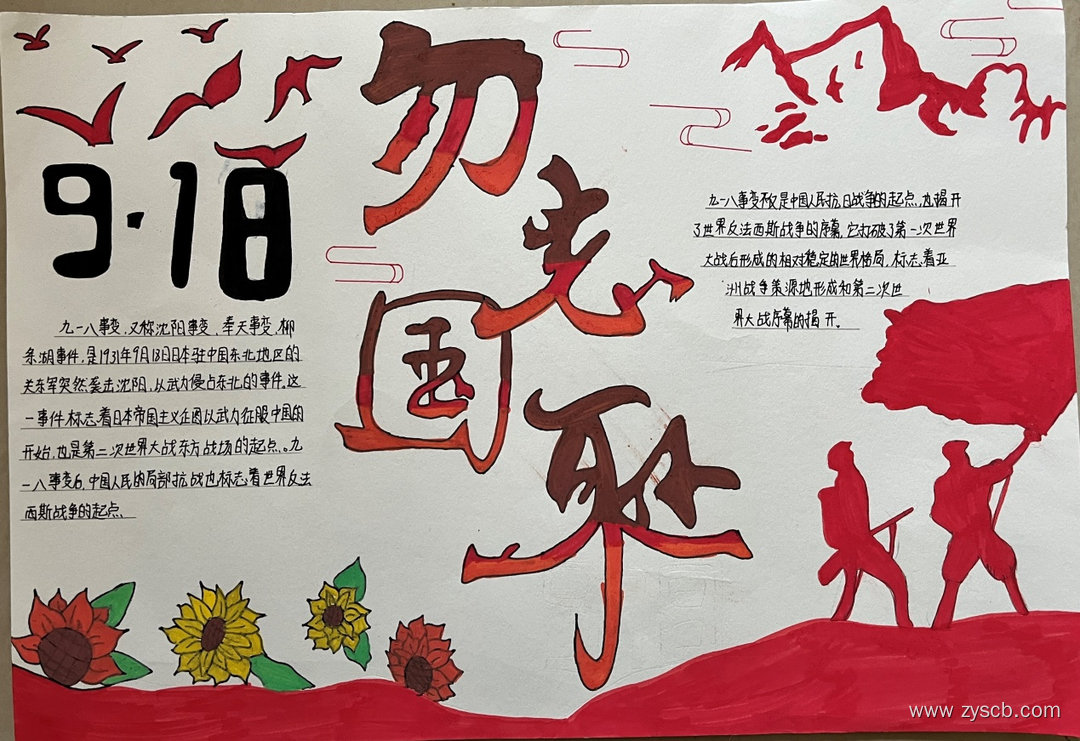 勿忘国耻
9·18
九一八事变,又称沈阳事变、奉天事变、柳
条湖事件,是1931年9月18日日本驻中国东北地区的
关东军突然袭击沈阳,以武力侵占东北的事件。这
一事件标志着日本帝国主义企图以武力征服中国的
开始,也是第二次世界大战东方战场的起点。九
一八事变后,中国人民的局部抗战也标志着世界反法
西斯战争的起点、
九一八事变不仅是中国人民抗日战争的起点,也揭开
了世界反法西斯战争的序幕,它打破了第一次世界
大战后形成的相对稳定的世界格局,标志着亚
洲战争策源地形成和第二次世
界大战序幕的揭开。
www.zyscb.com